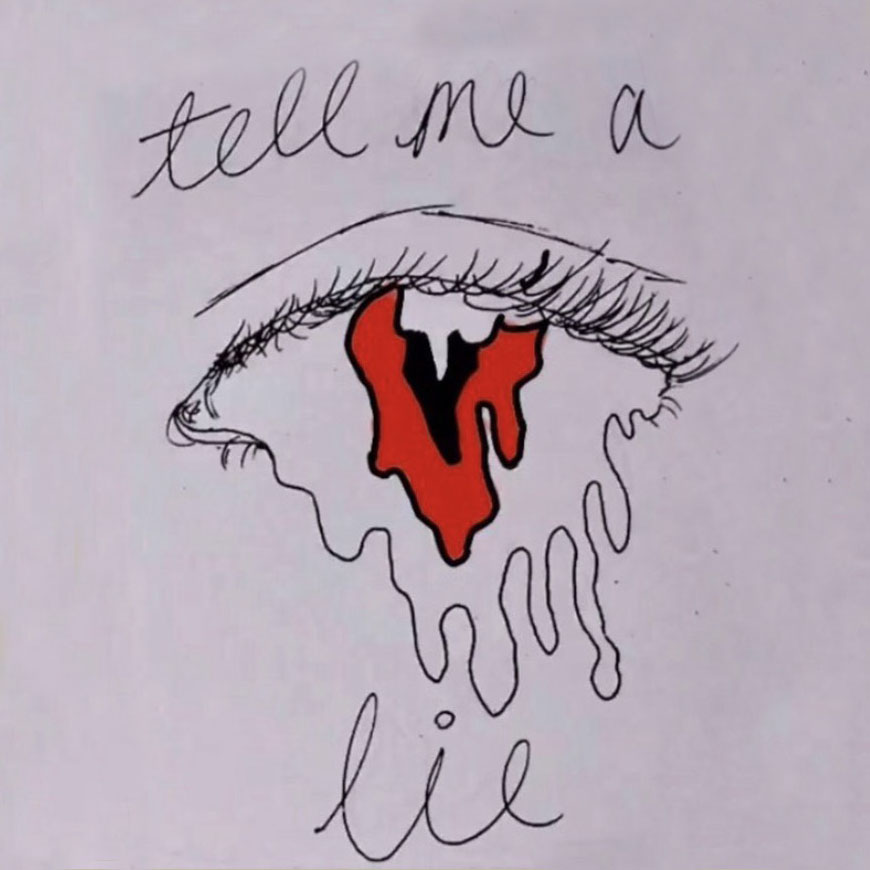 tell me a
lie